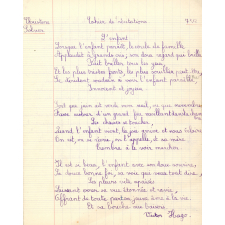 Cahier de récitations
L'enfant
Lorsque l'enfant paraît, le cercle de famille
Applaudit à grands cris; son doux regard qui brille
Fait briller tous les yeux,
Et les plus tristes fronts, les plus souillés peut-être,
Se dérident soudain à voir l'enfant paraître,
Innocent et joyeux.
Soit que juin ait verdi mon seuil, ou que novembre
Fasse autour d'un grand feu vacillant dans la chambre
Les chaises se toucher,
Quand l'enfant vient, la joie arrive et nous éclaire.
On rit, on se récrie, on l'appelle, et sa mère
Tremble à le voir marcher.
Il est si beau, l'enfant, avec son doux sourire,
Sa douce bonne foi, sa voix qui veut tout dire,
Ses pleurs vite apaisés,
Laissant errer sa vue étonnée et ravie,
Offrant de toutes parts sa jeune âme à la vie
Et sa bouche aux baisers.
Victor Hugo.